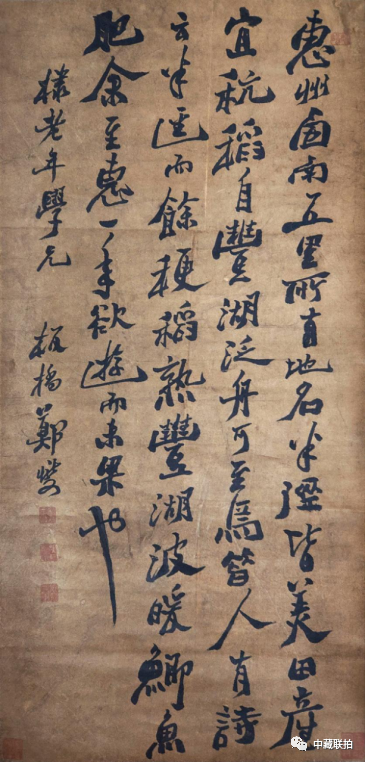 惠州西南五里所有地名半逕皆美田產
宜秔稻自豐湖泛舟可至焉昔人有詩
云半逕而餘粳稻熟豐湖波暖鯽魚
肥余至惠一年欲遊而未果也
老年學兄 板橋鄭燮
中藏联拍